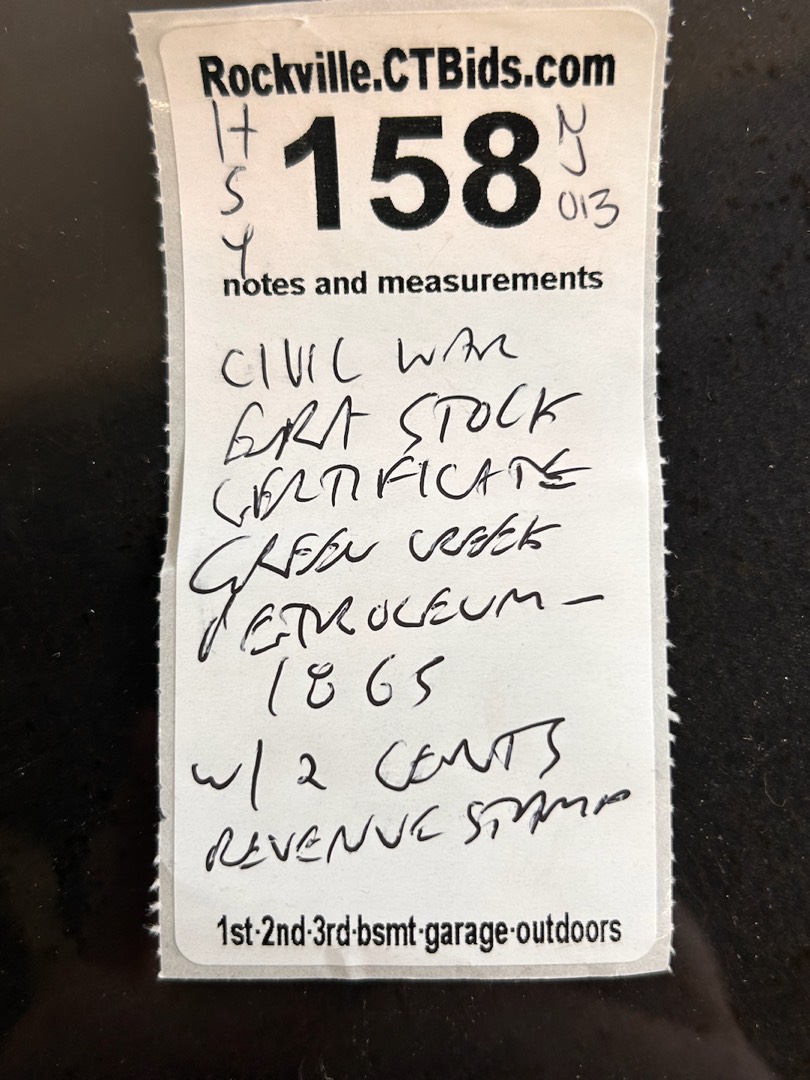 Rockville.CTBids.com
H S Y 158 NJ 013
notes and measurements
CIVIL WAR
ERA STOCK
CERTIFICATE
GREEN CREEK
PETROLEUM -
1865
W/ 2 CENTS
REVENUE STAMP
1st·2nd·3rd·bsmt·garage·outdoors